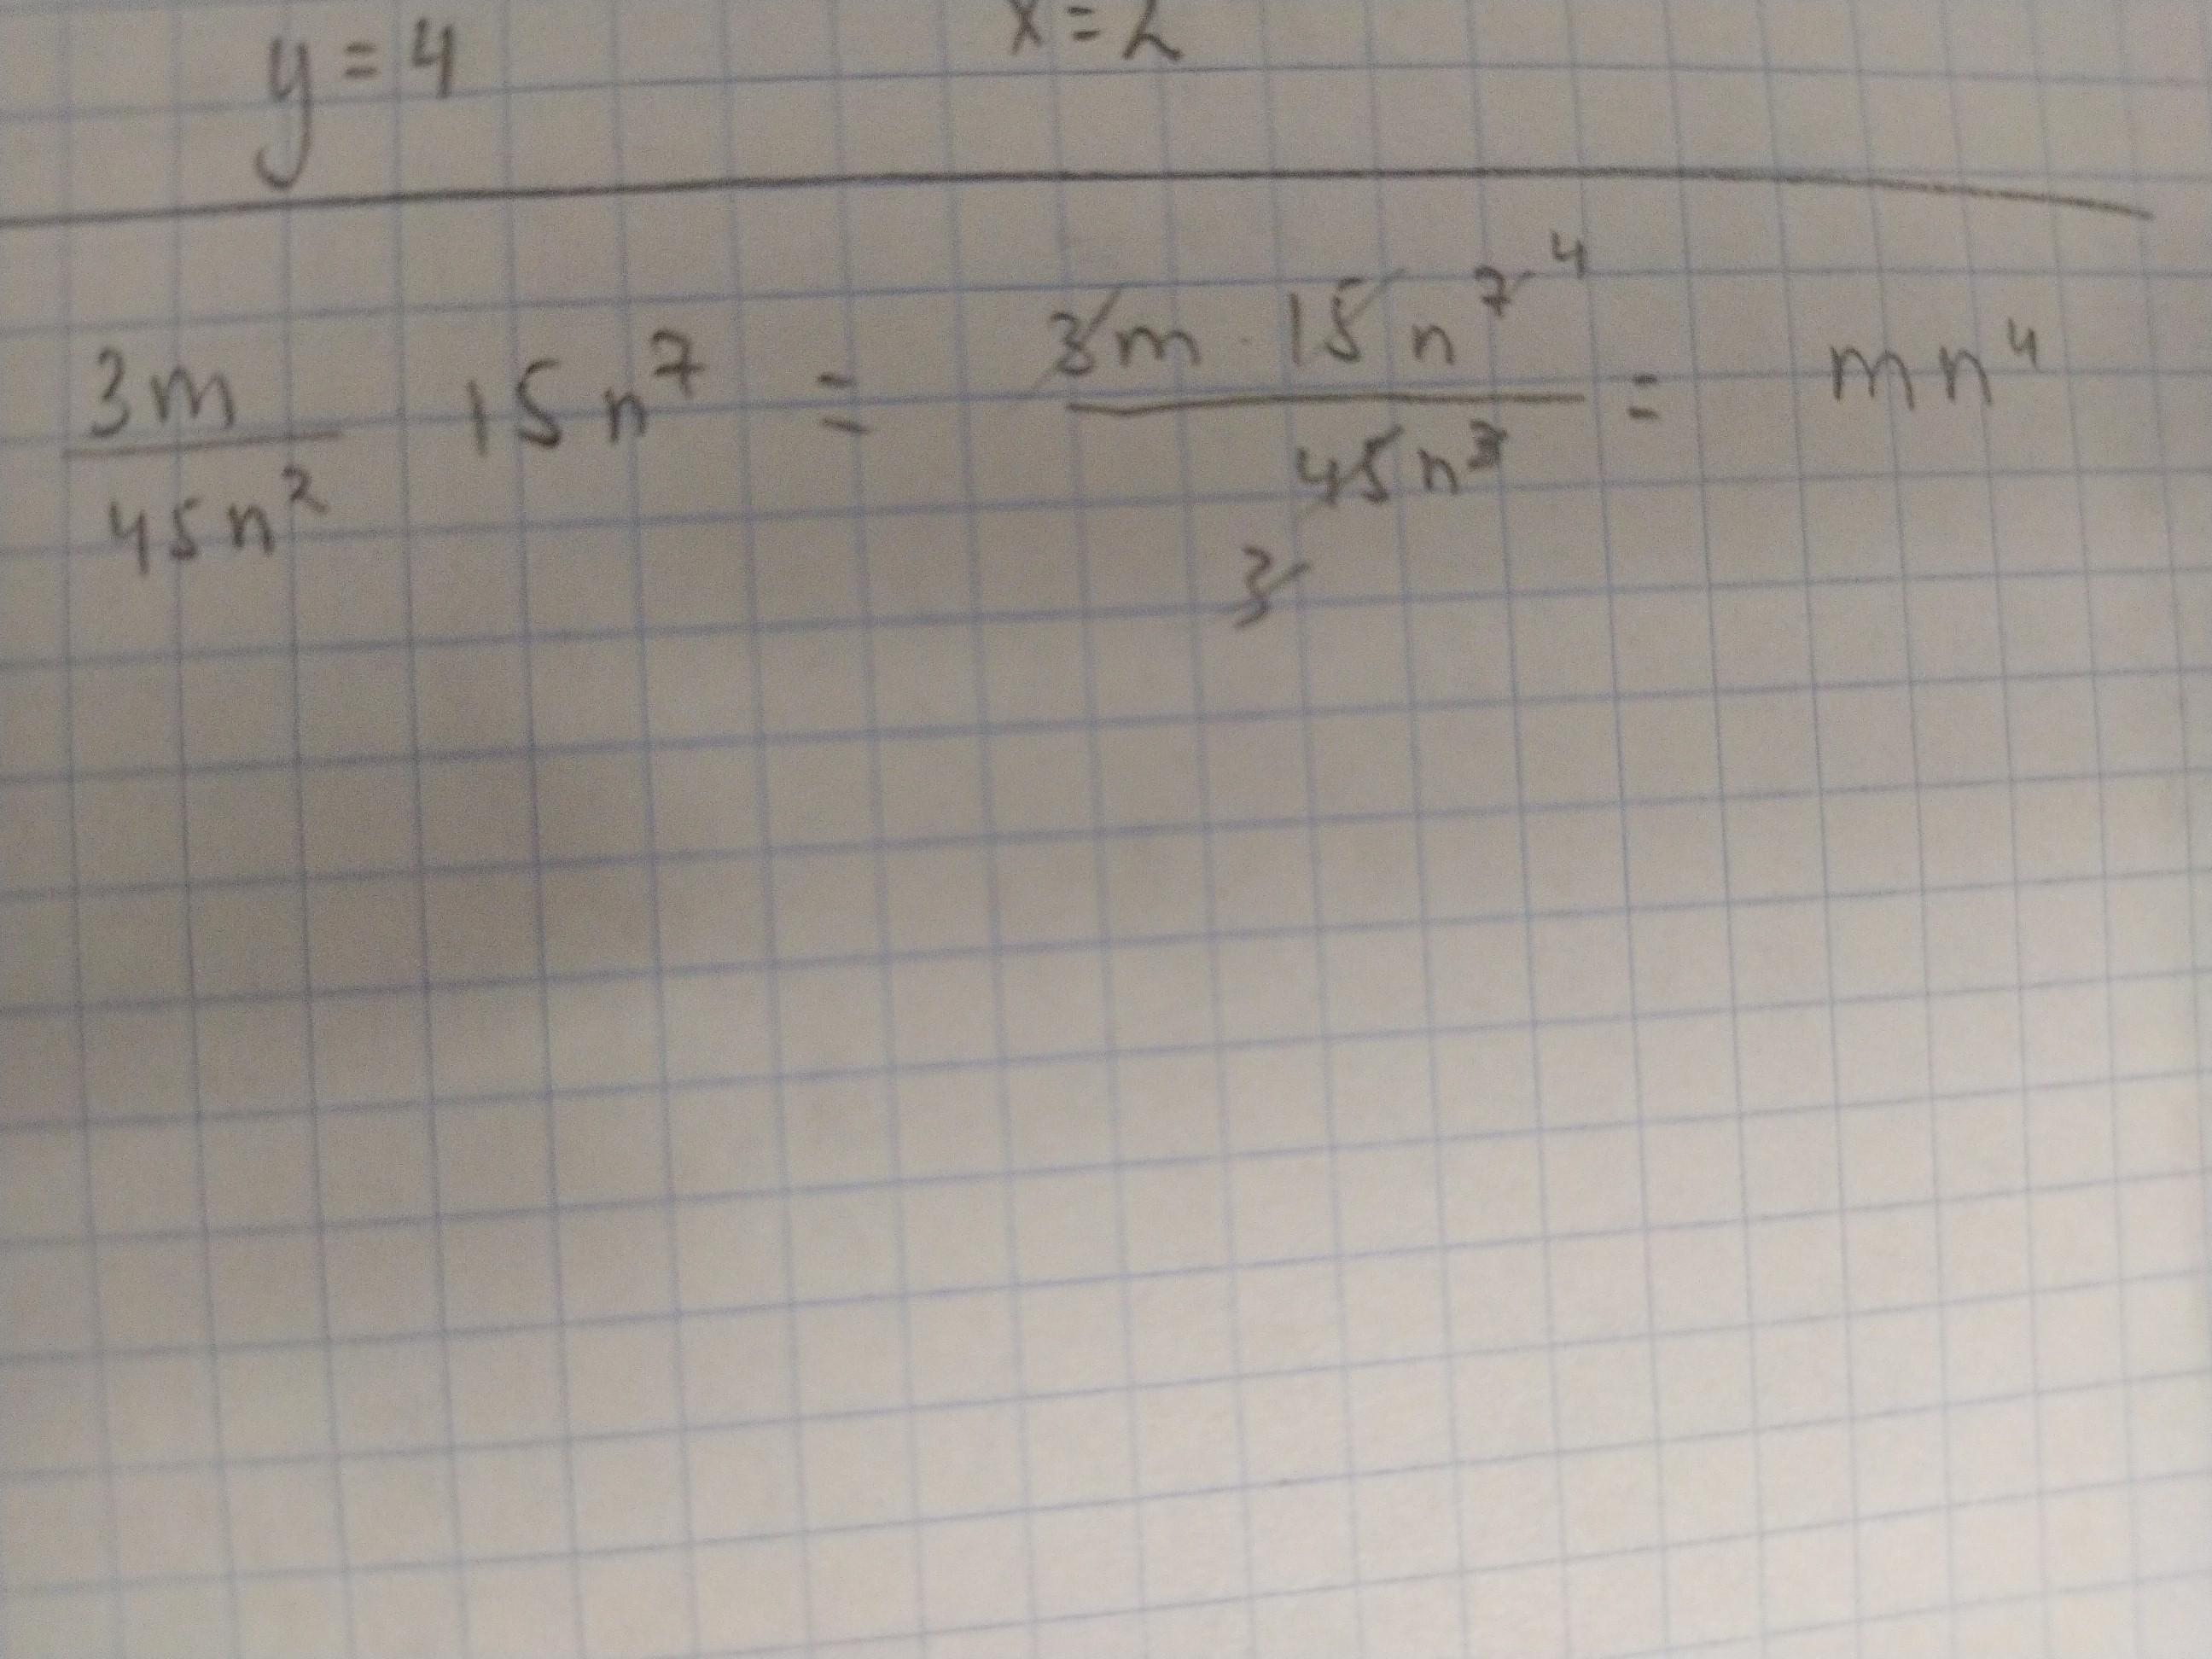 y = 4 x = 2
3m/45n² 15n⁷ = 3m · 15n⁷ ⁴/45n³ = mn⁴
3